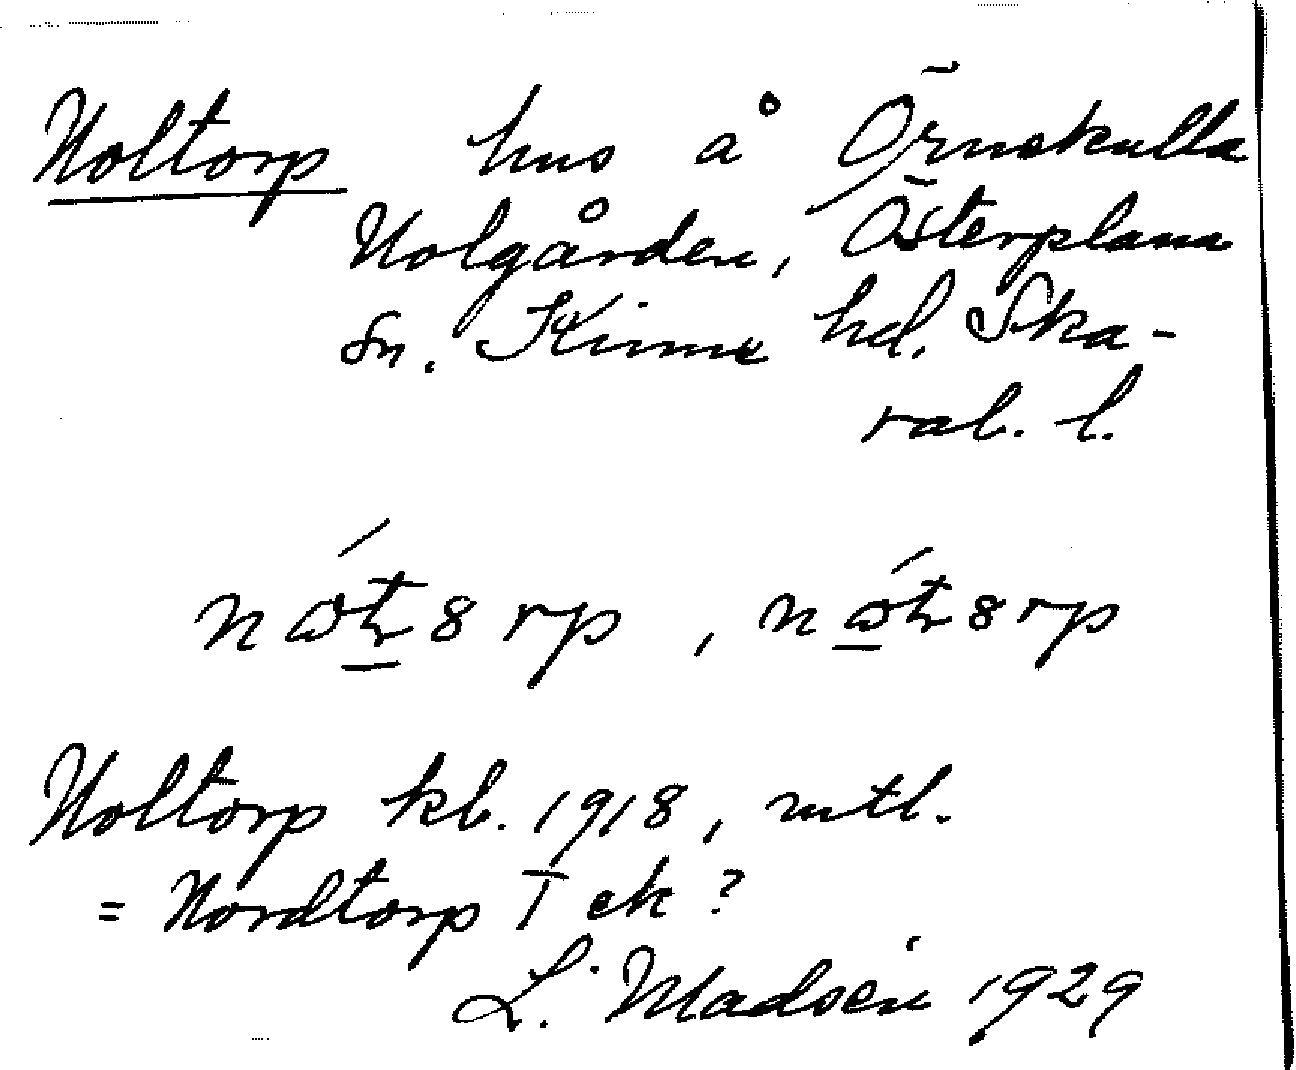 Noltorp hus å Örnekulla
Nolgården, Österplana
sn. Kinne hd. Ska-
rab. l.
Noltorp kb. 1918, mtl.
= Nordtorp T ek?
L. Madsén 1929